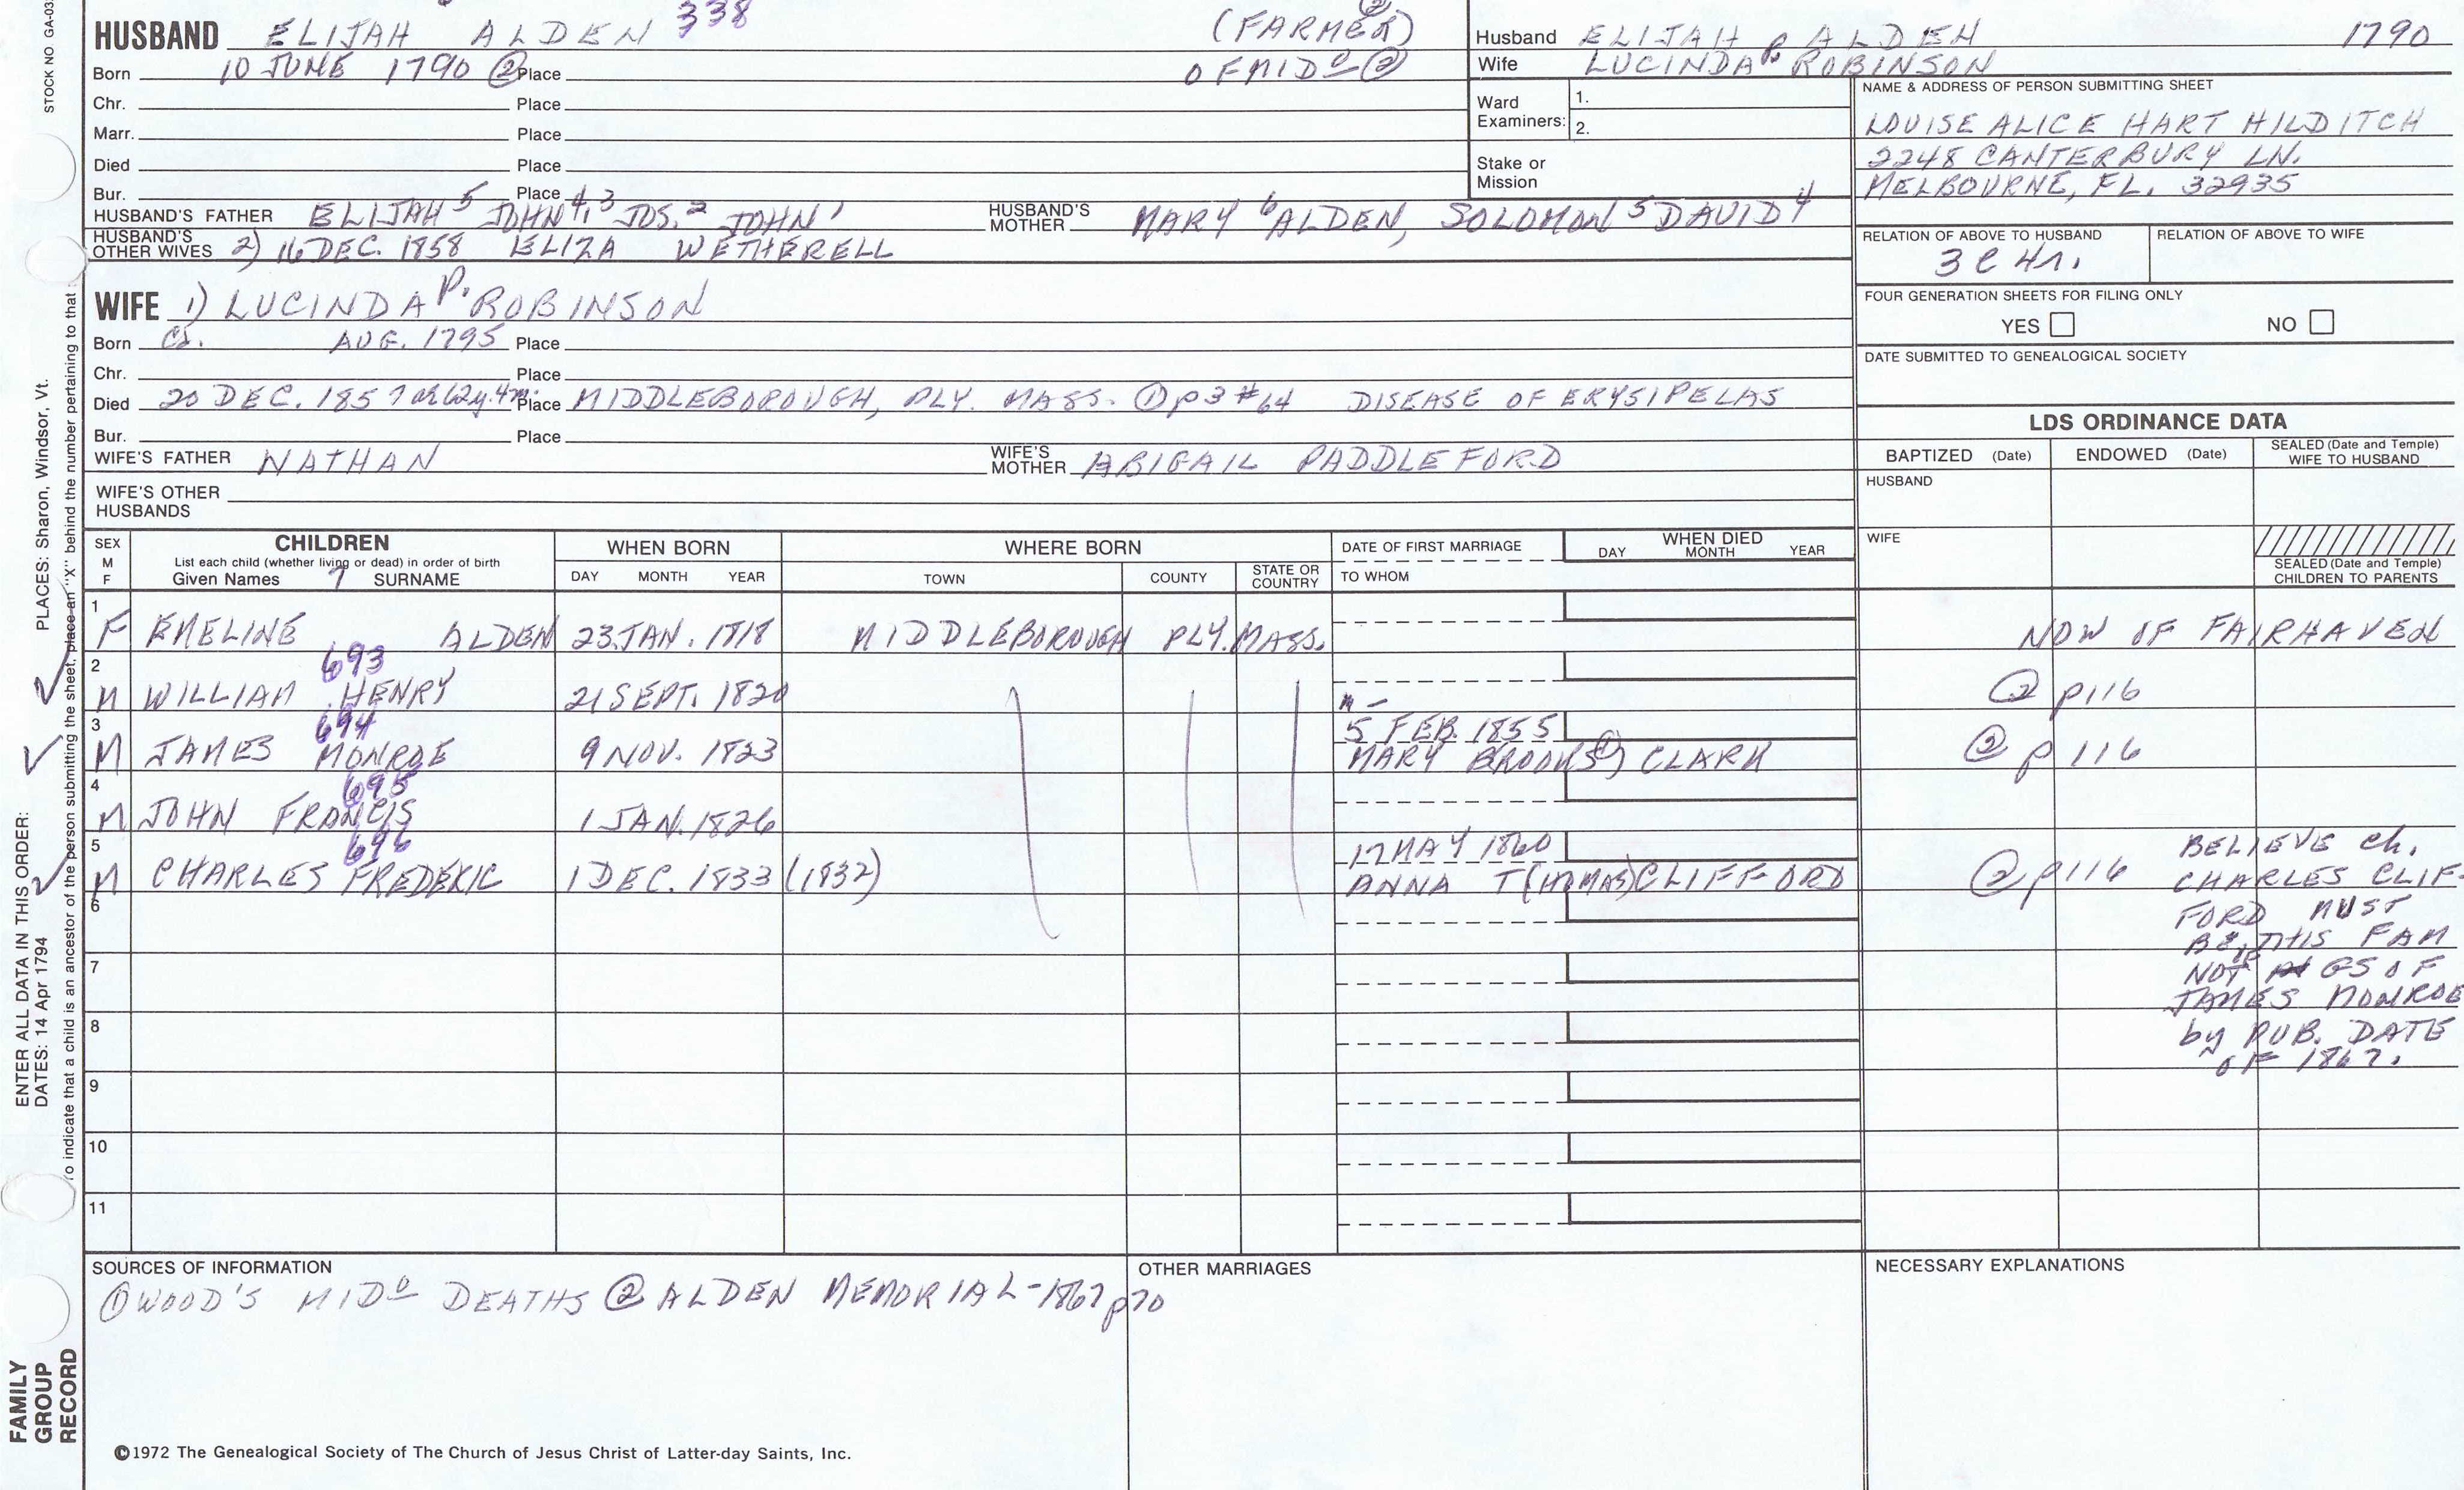 STOCK NO GA-03
HUSBAND ELIJAH ALDEN 338 (FARMER) ②
Born 10 JUNE 1790 ② Place OF MIDO ②
Chr. Place
Marr. Place
Died Place
Bur. Place
HUSBAND'S FATHER ELIJAH 5 JOHN 4,3 JOS. 2 JOHN 1 HUSBAND'S MOTHER MARY 6 ALDEN, SOLOMON 5 DAVID 4
HUSBAND'S OTHER WIVES 2) 16 DEC. 1858 ELIZA WETHERELL
Husband ELIJAH ALDEN 1790
Wife LUCINDA P. ROBINSON
Ward Examiners: 1.
2.
Stake or Mission
NAME & ADDRESS OF PERSON SUBMITTING SHEET
LOUISE ALICE HART HILDITCH
2248 CANTERBURY LN.
MELBOURNE, FL. 32935
RELATION OF ABOVE TO HUSBAND RELATION OF ABOVE TO WIFE
3C 4r.
FOUR GENERATION SHEETS FOR FILING ONLY
YES NO
DATE SUBMITTED TO GENEALOGICAL SOCIETY
WIFE 1) LUCINDA P. ROBINSON
Born Ca. AUG. 1795 Place
Chr. Place
Died 20 DEC. 1857 ae 62y. 4m. Place MIDDLEBOROUGH, PLY. MASS. ① p3 #64 DISEASE OF ERYSIPELAS
Bur. Place
WIFE'S FATHER NATHAN WIFE'S MOTHER ABIGAIL PADDLEFORD
WIFE'S OTHER HUSBANDS
LDS ORDINANCE DATA
BAPTIZED (Date) ENDOWED (Date) SEALED (Date and Temple) WIFE TO HUSBAND
HUSBAND
WIFE
SEALED (Date and Temple) CHILDREN TO PARENTS
SEX M F CHILDREN List each child (whether living or dead) in order of birth Given Names 7 SURNAME
WHEN BORN DAY MONTH YEAR
WHERE BORN TOWN COUNTY STATE OR COUNTRY
DATE OF FIRST MARRIAGE TO WHOM
WHEN DIED DAY MONTH YEAR
1 F EMELINE ALDEN 23 JAN. 1818 MIDDLEBOROUGH PLY. MASS. NOW OF FAIRHAVEN
2 M WILLIAM HENRY 693 21 SEPT. 1820 m - ② p116
3 M JAMES MONROE 694 9 NOV. 1823 5 FEB. 1855 MARY BROOKS ① CLARK ② p116
4 M JOHN FRANCIS 695 1 JAN. 1826
5 M CHARLES FREDERIC 696 1 DEC. 1833 (1832) 17 MAY 1860 ANNA T(HOMAS) CLIFFORD ② p116
BELIEVE ch.
CHARLES CLIF-
FORD MUST
BE THIS FAM
NOT GS OF
JAMES MONROE
by PUB. DATE
OF 1867.
6
7
8
9
10
11
SOURCES OF INFORMATION
① WOOD'S MIDO DEATHS ② ALDEN MEMORIAL - 1867 p70
OTHER MARRIAGES
NECESSARY EXPLANATIONS
©1972 The Genealogical Society of The Church of Jesus Christ of Latter-day Saints, Inc.
FAMILY GROUP RECORD
ENTER ALL DATA IN THIS ORDER:
DATES: 14 Apr 1794 PLACES: Sharon, Windsor, Vt.
To indicate that a child is an ancestor of the person submitting the sheet, place an "X" behind the number pertaining to that